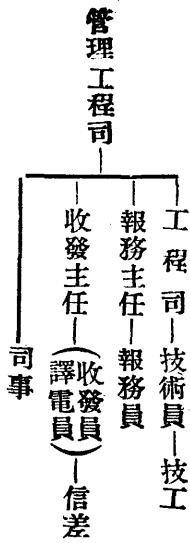 管理工程司
工程司—技術員—技工
報務主任—報務員
收發主任—(收發員 譯電員)—信差
司事